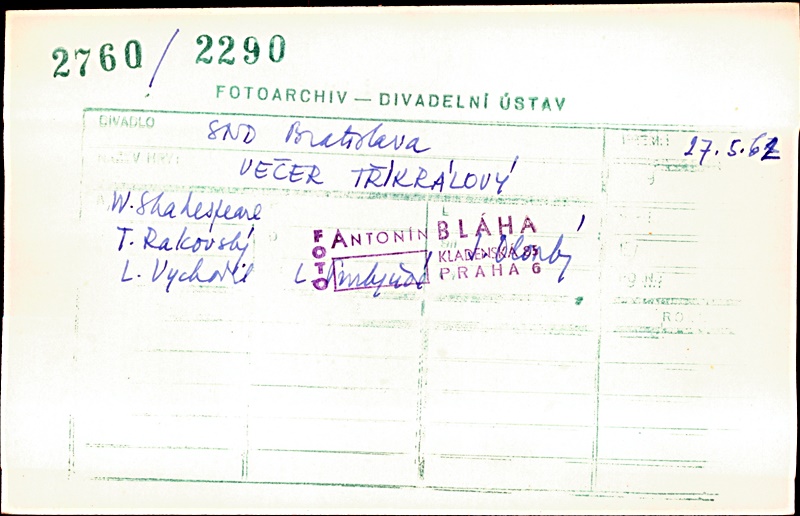 2760 / 2290
FOTOARCHIV — DIVADELNÍ ÚSTAV
DIVADLO SND Bratislava 27.5.62
VEČER TŘÍKRÁLOVÝ
W. Shakespeare
T. Rakovský
L. Vychodil L.
FOTO ANTONÍN BLÁHA
KLADENSKÁ
PRAHA 6